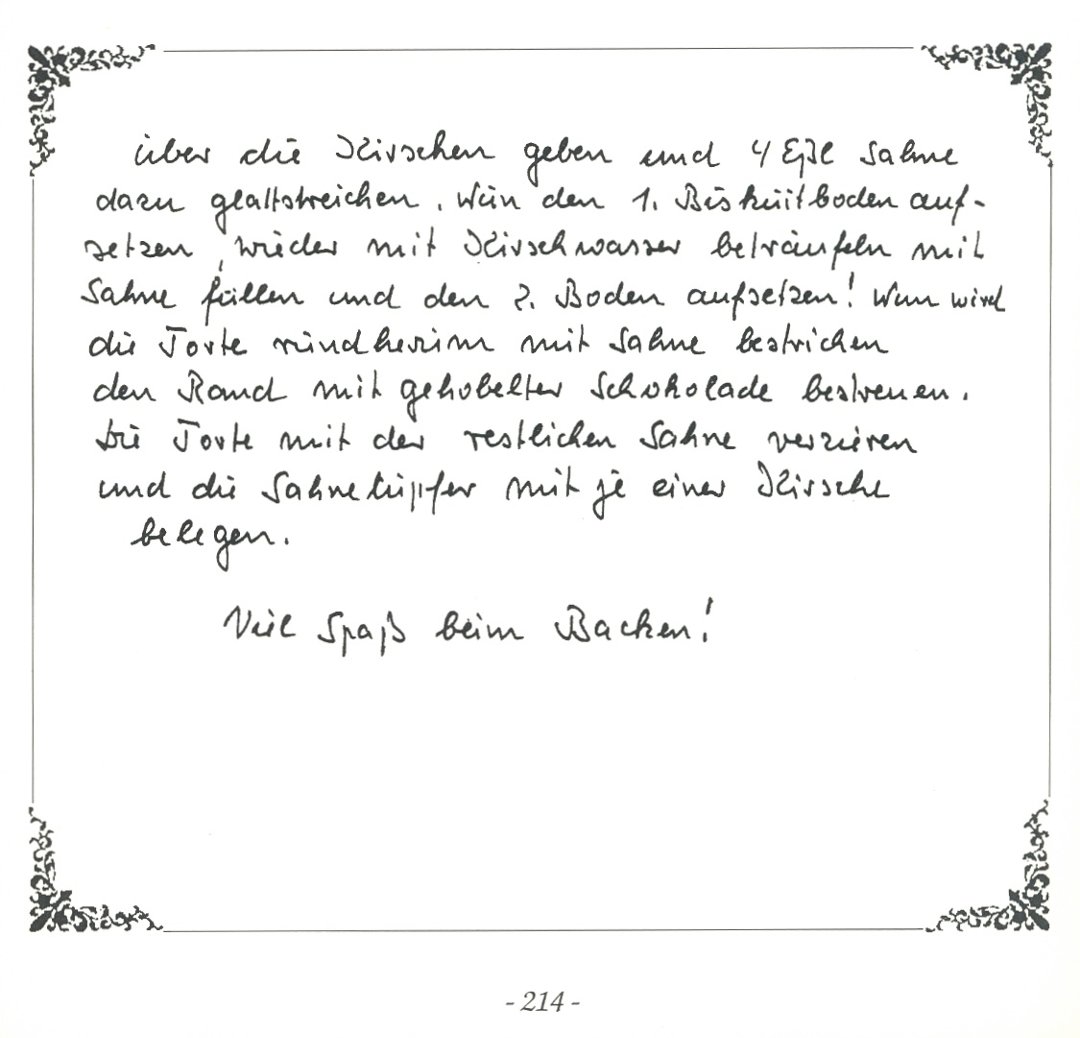 über die Kirschen geben und 4 Eßl Sahne
dazu glattstreichen. Nun den 1. Biskuitboden auf-
setzen, wieder mit Kirschwasser beträufeln mit
Sahne füllen und den 2. Boden aufsetzen! Nun wird
die Torte rundherum mit Sahne bestrichen
den Rand mit gehobelter Schokolade bestreuen.
Die Torte mit der restlichen Sahne verzieren
und die Sahnetupfer mit je einer Kirsche
belegen.
Viel Spaß beim Backen!
- 214 -